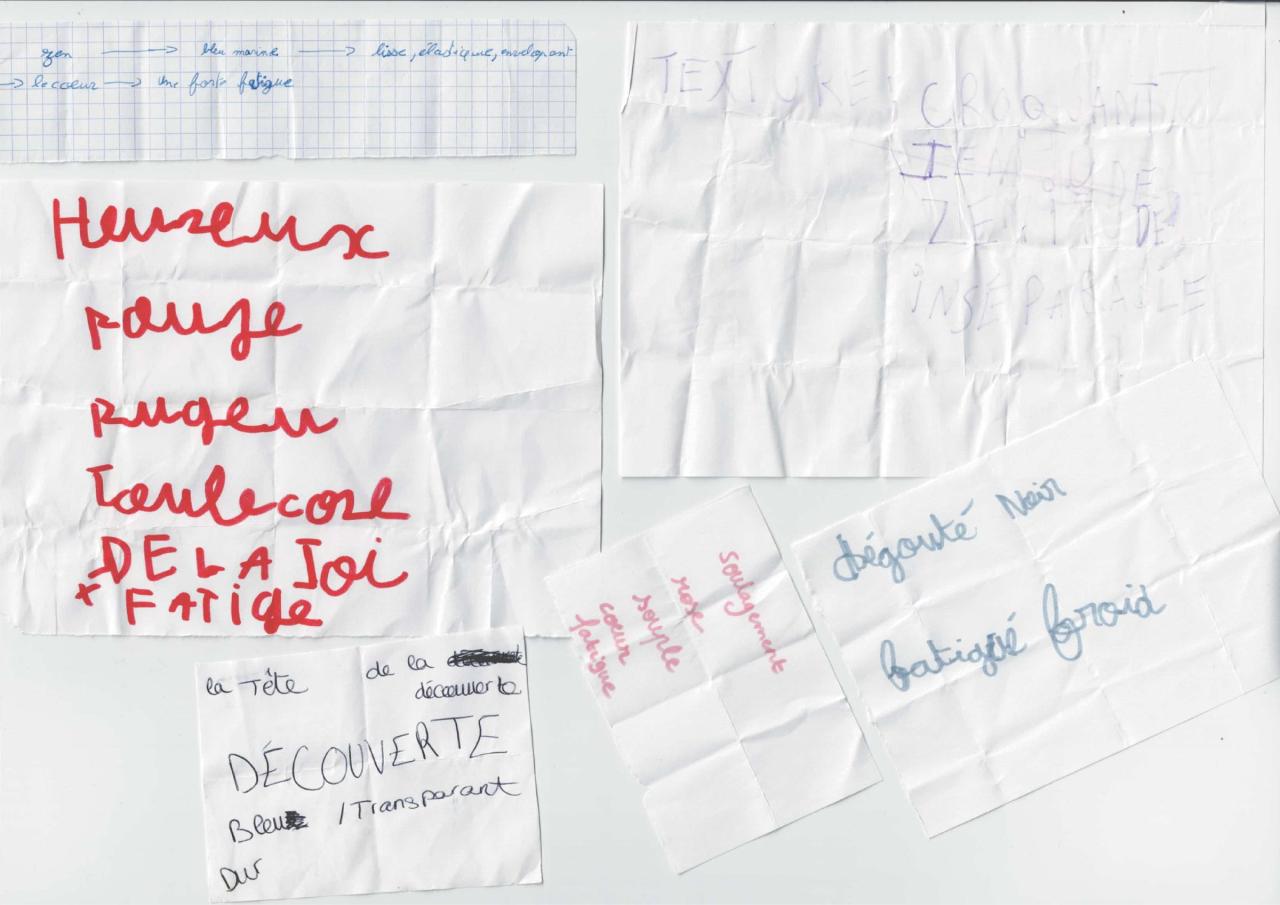 zen → bleu marine → lisse, élastique, envelopant
→ le coeur → une forte fatigue
TEXTURE: CROQUANTE
ZENITUDE
INSÉPARABLE
Heureux
rouge
rugeu
Toulecore
DE LA Joi
+ FATige
Dégouté Noir
fatigué froid
soulagement
rose
souple
coeur
fatigue
la Tête de la
découverte
DÉCOUVERTE
Bleu /Transparant
Dur